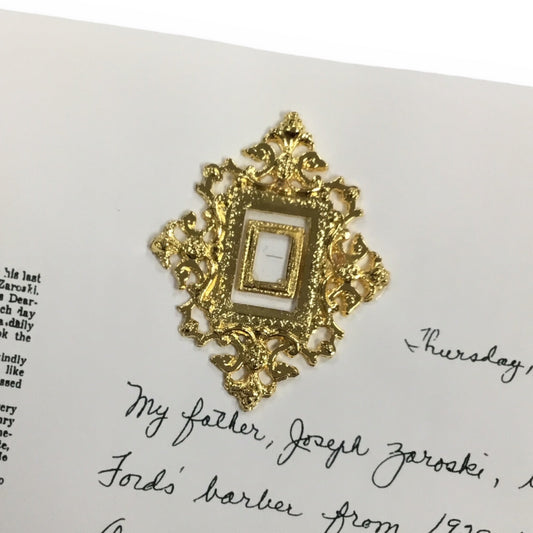 his last
Zaroski.
s Dear-
ch day
a daily
ok the
indly
like
ssed
ery
nry
me-
te,
le
o
Thursday,
My father, Joseph Zaroski,
Fords' barber from